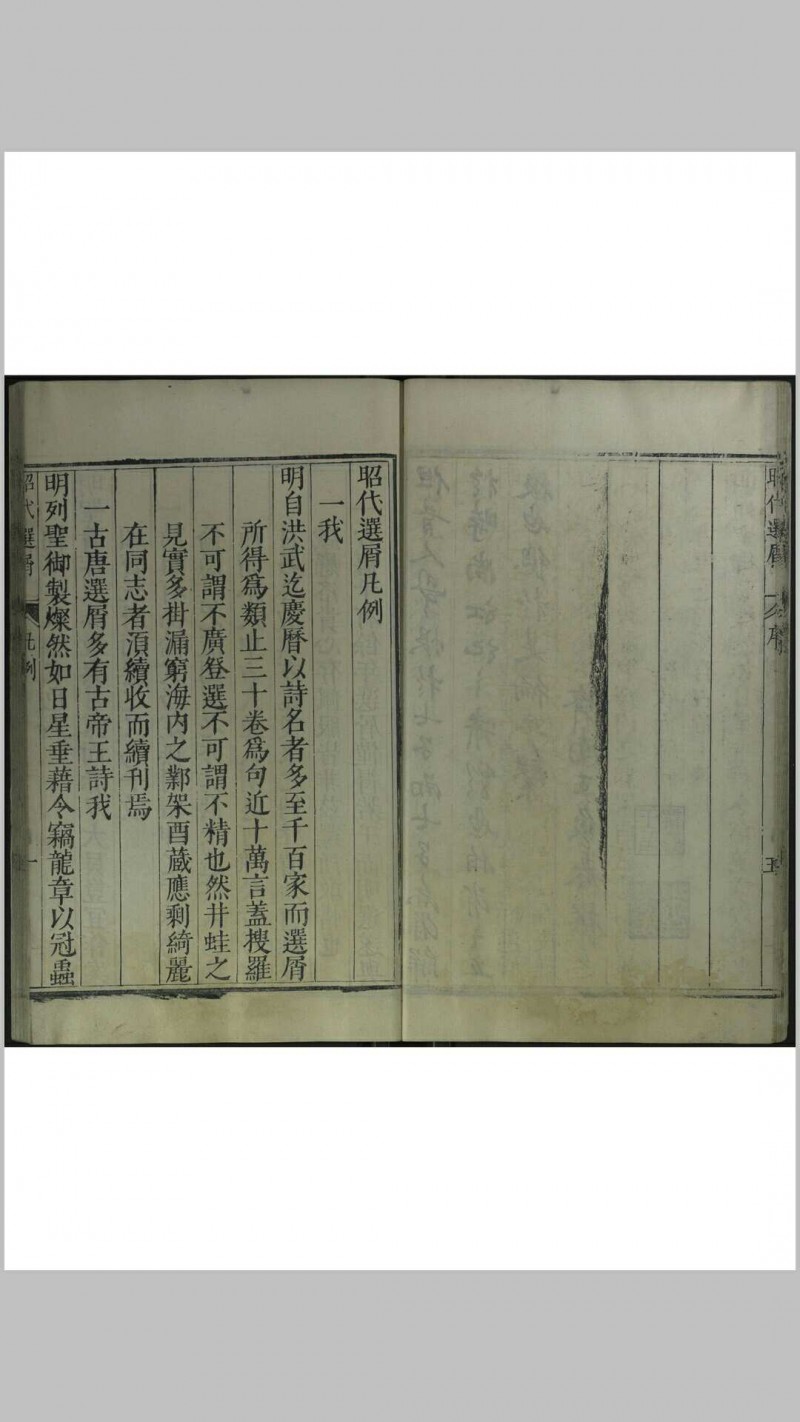 昭代選屑 序
五
昭代選屑凡例
一我
明自洪武迄慶曆以詩名者多至千百家而選屑
所得爲類止三十卷爲句近十萬言蓋搜羅
不可謂不廣登選不可謂不精也然井蛙之
見實多挂漏窮海内之鄴架酉蔵應剩綺麗
在同志者湏續收而續刊焉
一古唐選屑多有古帝王詩我
明列聖御製燦然如日星垂藉令竊龍章以冠蟲
昭代選屑 凡例
一